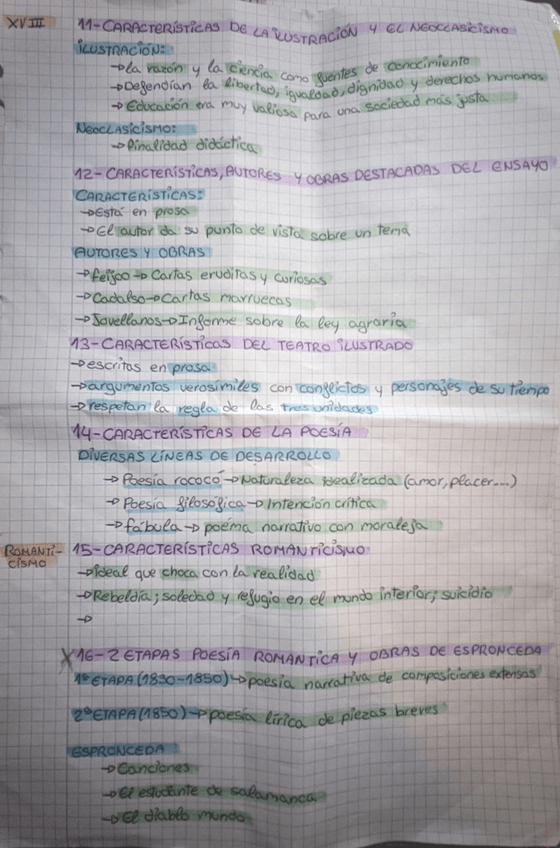 XVIII
11-CARACTERÍSTICAS DE LA ILUSTRACIÓN Y EL NEOCLASICISMO
ILUSTRACIÓN:
→La razón y la ciencia como fuentes de conocimiento
→Defendían la libertad, igualdad, dignidad y derechos humanos
→Educación era muy valiosa para una sociedad más justa
NEOCLASICISMO:
→Finalidad didáctica
12-CARACTERÍSTICAS, AUTORES Y OBRAS DESTACADAS DEL ENSAYO
CARACTERÍSTICAS:
→Está en prosa
→El autor da su punto de vista sobre un tema
AUTORES Y OBRAS
→Feijoo→Cartas eruditas y curiosas
→Cadalso→Cartas marruecas
→Jovellanos→Informe sobre la ley agraria
13-CARACTERÍSTICAS DEL TEATRO ILUSTRADO
→escritas en prosa
→argumentos verosímiles con conflictos y personajes de su tiempo
→respetan la regla de las tres unidades
14-CARACTERÍSTICAS DE LA POESÍA
DIVERSAS LÍNEAS DE DESARROLLO
→Poesía rococó→Naturaleza idealizada (amor, placer...)
→Poesía filosófica→Intención crítica
→fábula→poema narrativo con moraleja
ROMANTI-
CISMO
15-CARACTERÍSTICAS ROMANTICISMO
→Ideal que choca con la realidad
→Rebeldía; soledad y refugio en el mundo interior; suicidio
→
X16-2 ETAPAS POESÍA ROMANTICA Y OBRAS DE ESPRONCEDA
1ª ETAPA (1830-1850)→poesía narrativa de composiciones extensas
2ª ETAPA (1850)→poesía lírica de piezas breves
ESPRONCEDA
→Canciones
→El estudante de salamanca
→El diablo mundo